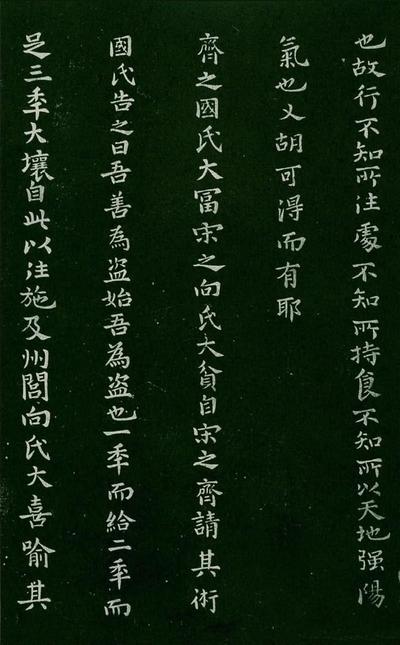 也故行不知所往處不知所持食不知所以天地强陽
氣也又胡可得而有耶
齊之國氏大冨宋之向氏大貧自宋之齊請其術
國氏告之曰吾善為盗始吾為盗也一季而給二季而
足三季大壤自此以往施及州閭向氏大喜喻其